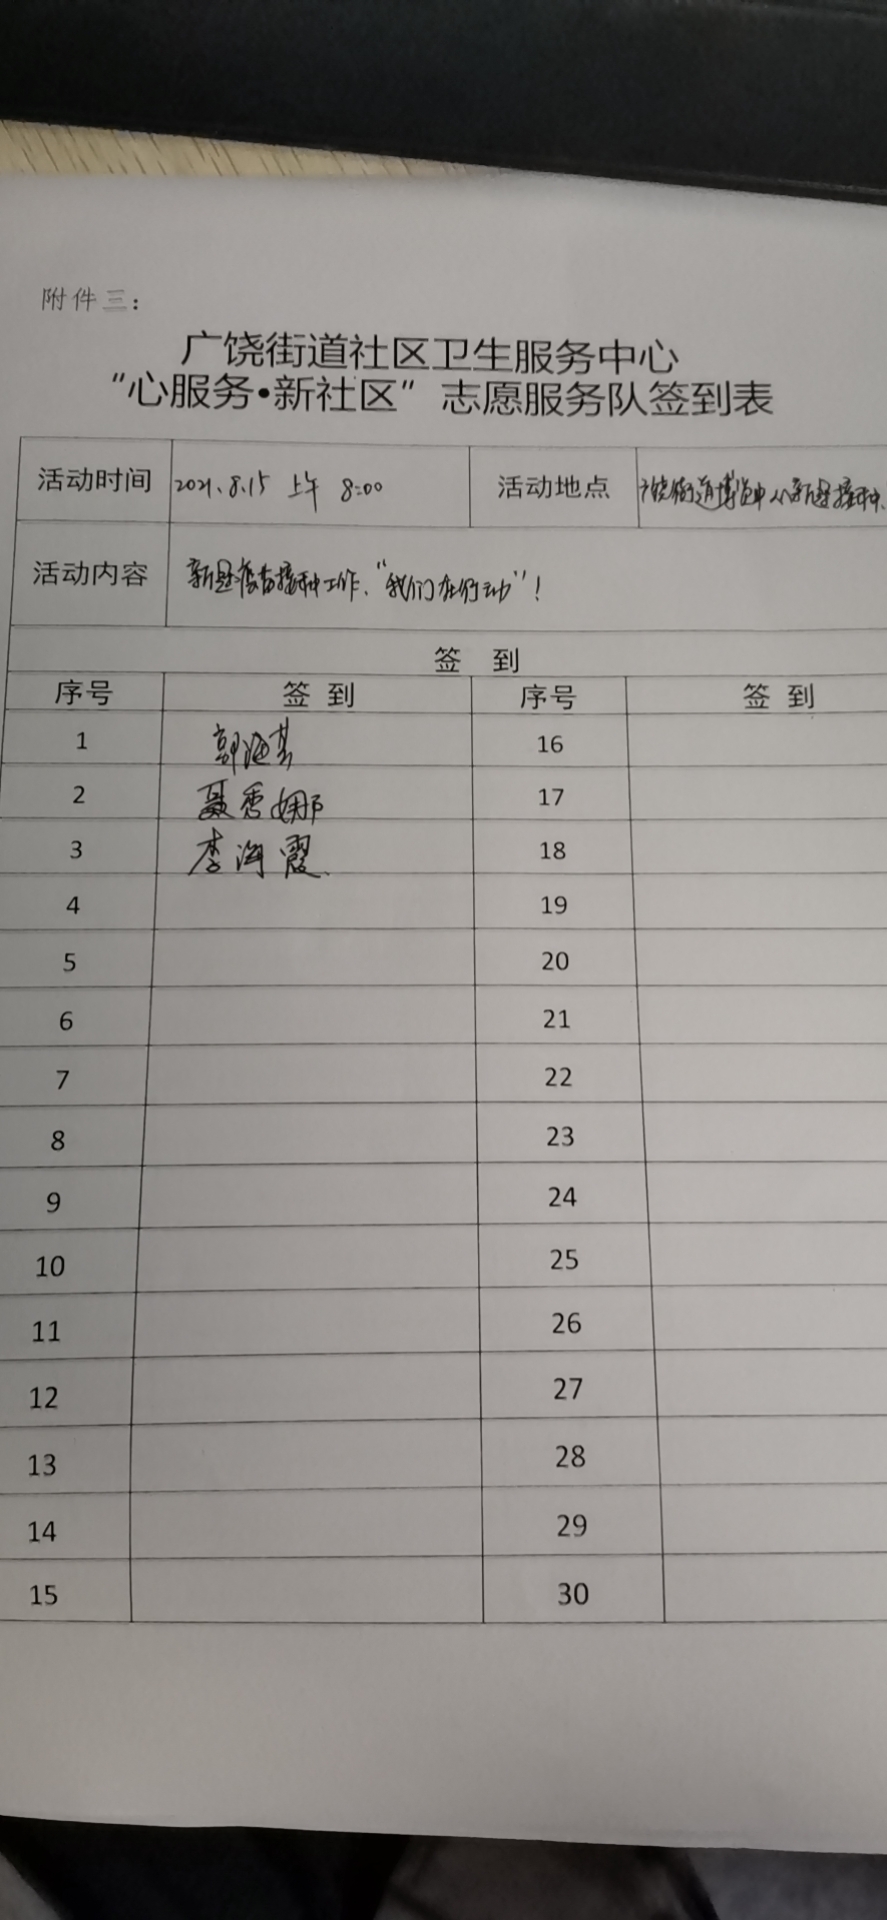 附件三：
广饶街道社区卫生服务中心
“心服务•新社区”志愿服务队签到表
活动时间 2021.8.15 上午 8:00 活动地点 广饶街道博览中心新冠接种
活动内容 新冠疫苗接种工作、“我们在行动”！
签 到
序号 签 到 序号 签 到
1 16
2 聂秀娜 17
3 李海霞 18
4 19
5 20
6 21
7 22
8 23
9 24
10 25
11 26
12 27
13 28
14 29
15 30